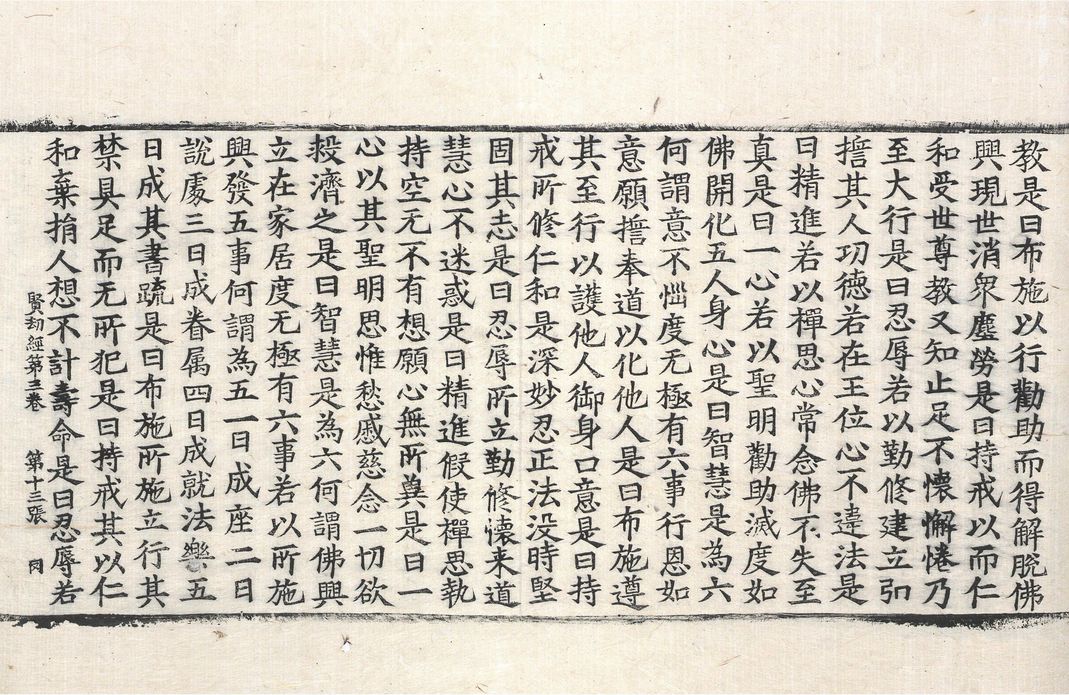 教是曰布施以行勸助而得解脱佛
興現世消衆塵勞是曰持戒以而仁
和受世尊教又知止足不懷懈惓乃
至大行是曰忍辱若以勤修建立弘
擔其人功德若在王位心不違法是
曰精進若以禪思心常念佛不失至
真是曰一心若以聖明勸助滅度如
佛開化五人身心是曰智慧是為六
何謂意不惱度无極有六事行恩如
意願擔奉道以化他人是曰布施遵
其至行以護他人御身口意是曰持
戒所修仁和是深妙忍正法没時堅
固其志是曰忍辱所立勤修懷来道
慧心不迷惑是曰精進假使禪思執
持空无不有想願心無所冀是曰一
心以其聖明思惟愁慼慈念一切欲
投濟之是曰智慧是為六何謂佛興
立在家居度无極有六事若以所施
興發五事何謂為五一曰成座二曰
說處三曰成眷属四曰成就法樂五
曰成其書䟽是曰布施所施立行其
禁具足而无所犯是曰持戒其以仁
和棄捐人想不計壽命是曰忍辱若
賢劫經第三卷 第十三張 罔